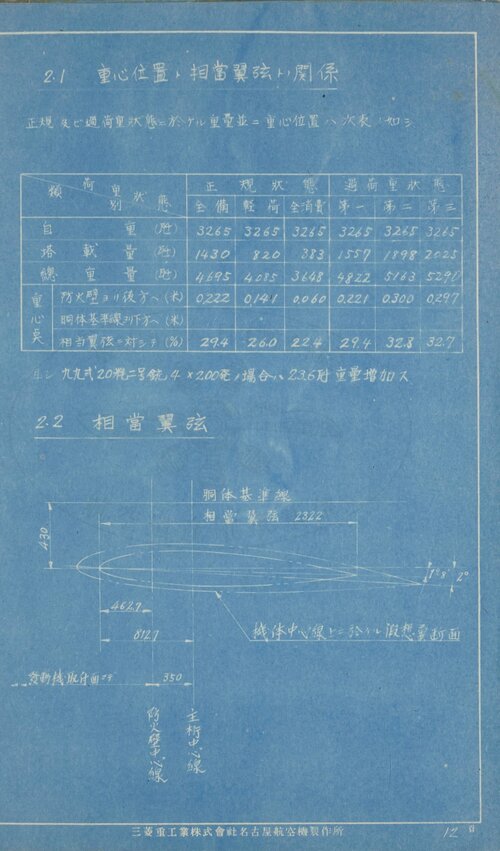 2.1 重心位置ト相當翼弦トノ関係
正規及ビ過荷重狀態ニ於ケル重量並ニ重心位置ハ次表ノ如シ
類別 荷重狀態 正規狀態 過荷重狀態
全備 軽荷 全消費 第一 第二 第三
自重 (瓩) 3265 3265 3265 3265 3265 3265
塔載量 (瓩) 1430 820 383 1557 1898 2025
總重量 (瓩) 4695 4085 3648 4822 5163 5290
重心点 防火壁ヨリ後方ヘ (米) 0.222 0.141 0.060 0.221 0.300 0.297
胴体基準線ヨリ下方ヘ (米)
相当翼弦ニ対シテ (%) 29.4 26.0 22.4 29.4 32.8 32.7
但シ 九九式20粍二号銃 4×200発ノ場合ハ 23.6瓩重量増加ス
2.2 相當翼弦
胴体基準線
相當翼弦 2322
430
1°8'
2°
462.7
812.7
機体中心線上ニ於ケル假想翼断面
發動機取付面マデ
350
防火壁中心線
主桁中心線
三菱重工業株式會社名古屋航空機製作所
12 頁